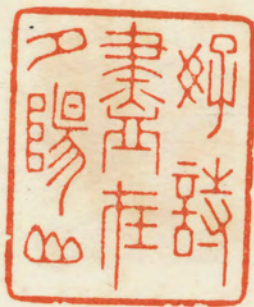 好詩
盡在
夕陽山